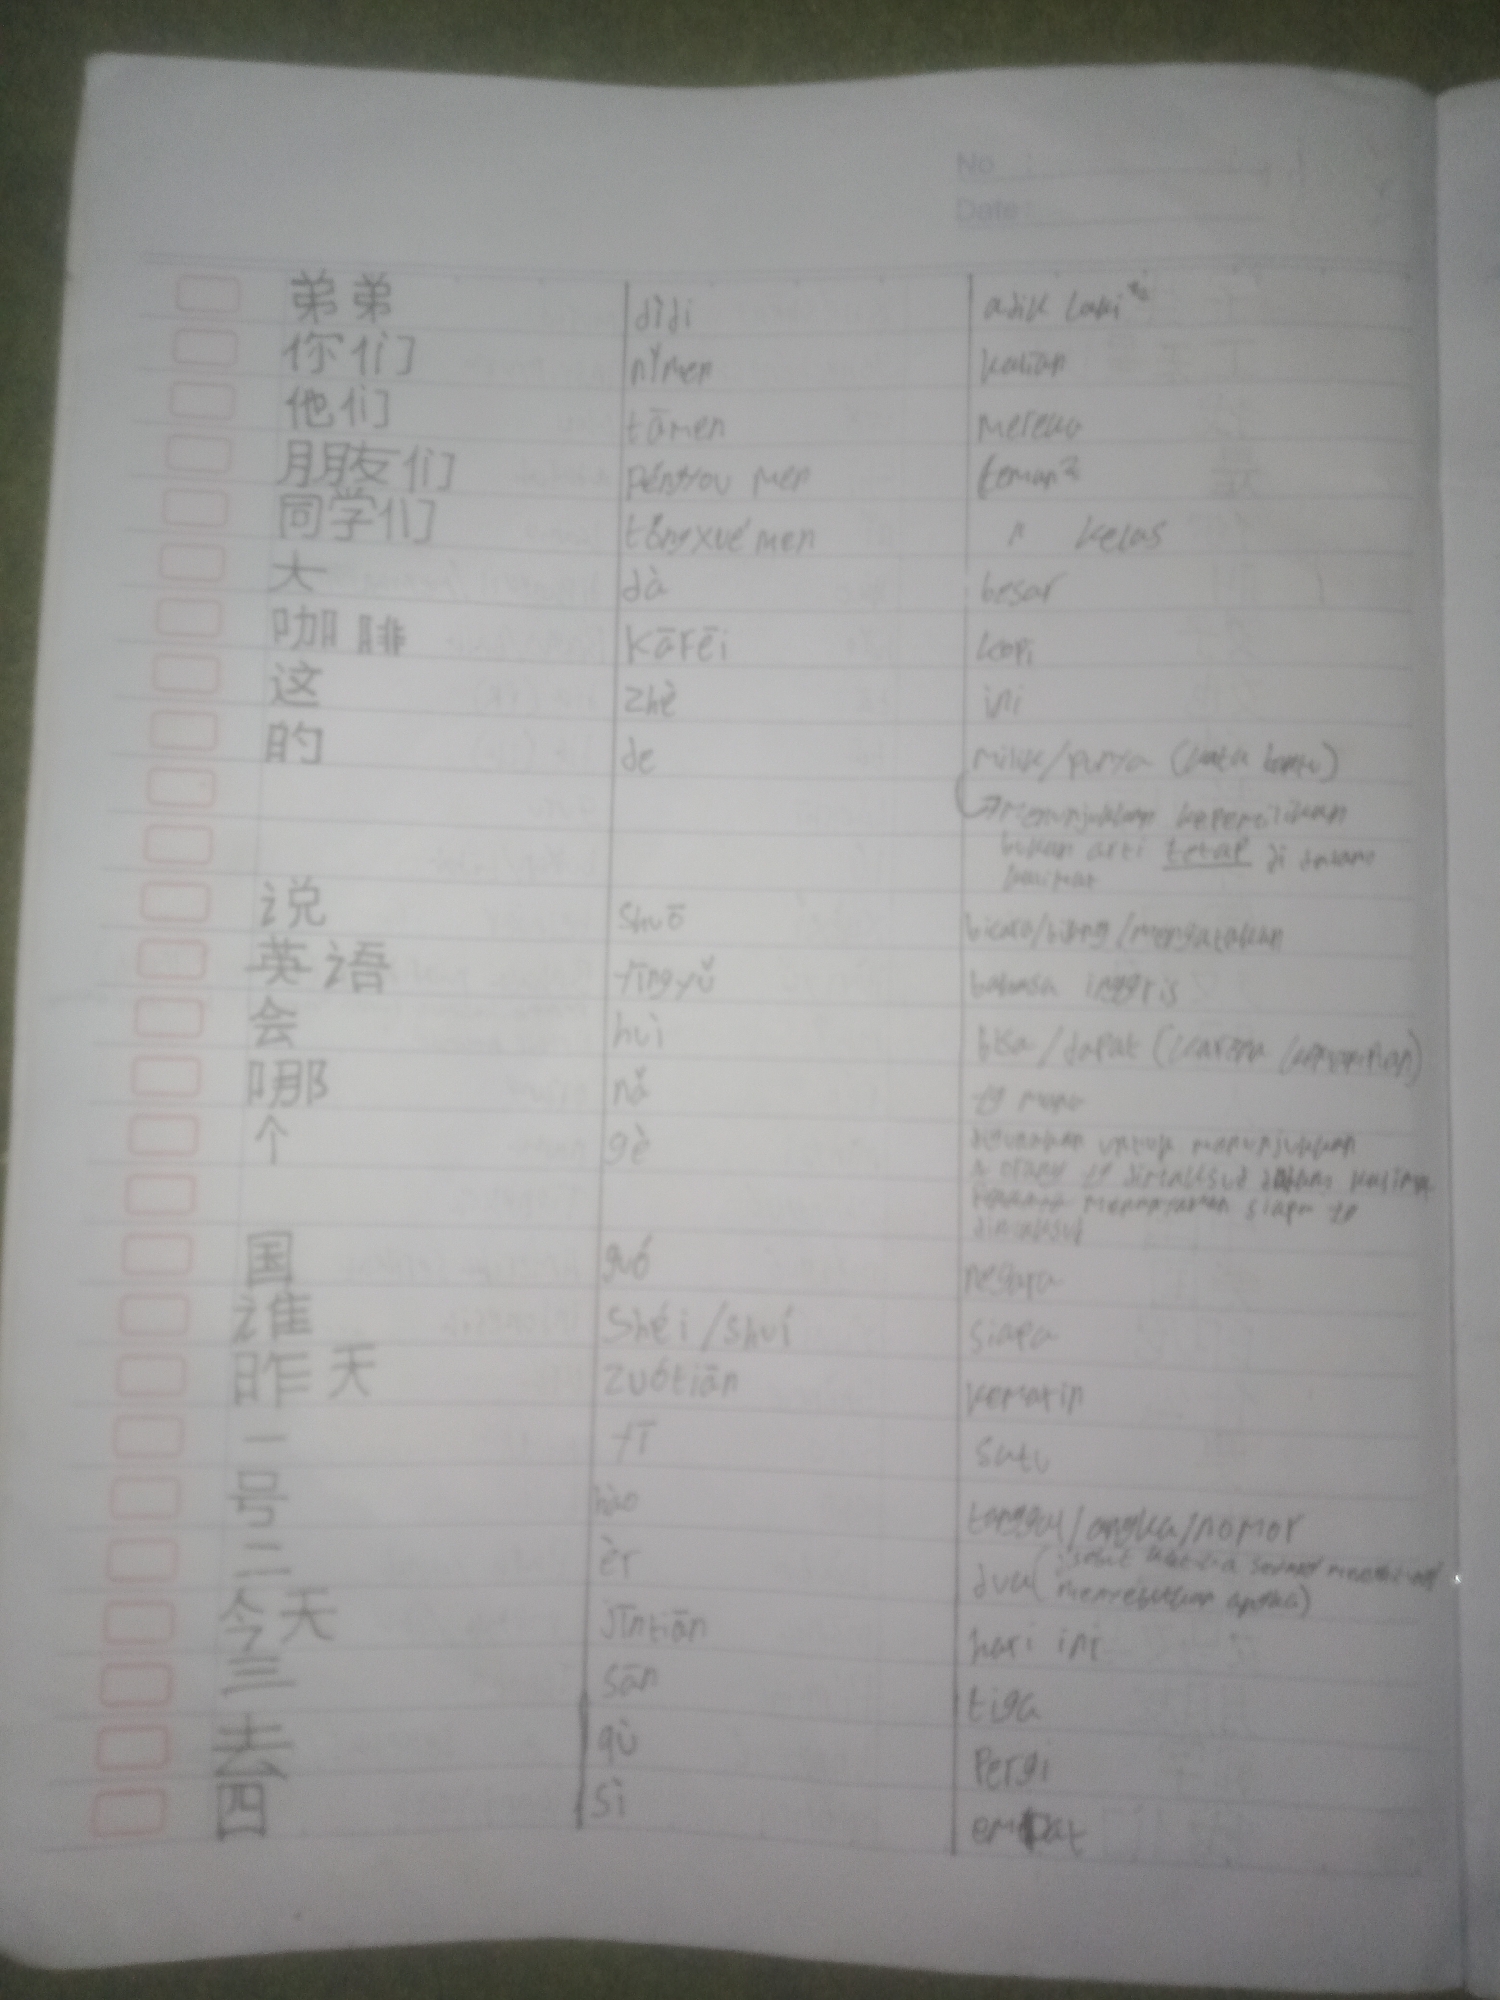 No :
Date :
弟弟 dìdi adik laki²
你们 nǐmen kalian
他们 tāmen mereka
朋友们 péngyou men teman²
同学们 tóngxué men " kelas
大 dà besar
咖啡 kāfēi kopi
这 zhè ini
的 de milik/punya (kata bantu)
menunjukkan kepemilikan
bukan arti tetap di dalam
kalimat
说 shuō bicara/bilang/mengatakan
英语 yīngyǔ bahasa inggris
会 huì bisa/dapat (karena
哪 nǎ yg mana
个 gè digunakan untuk menunjukkan
orang yg dimaksud dalam
menanyakan siapa yg
dimaksud
国 guó negara
谁 shéi/shuí siapa
昨天 zuótiān kemarin
一 yī satu
号 hào tanggal/angka/nomor
二 èr dua (
menyebutkan angka)
今天 jīntiān hari ini
三 sān tiga
去 qù pergi
四 sì empat